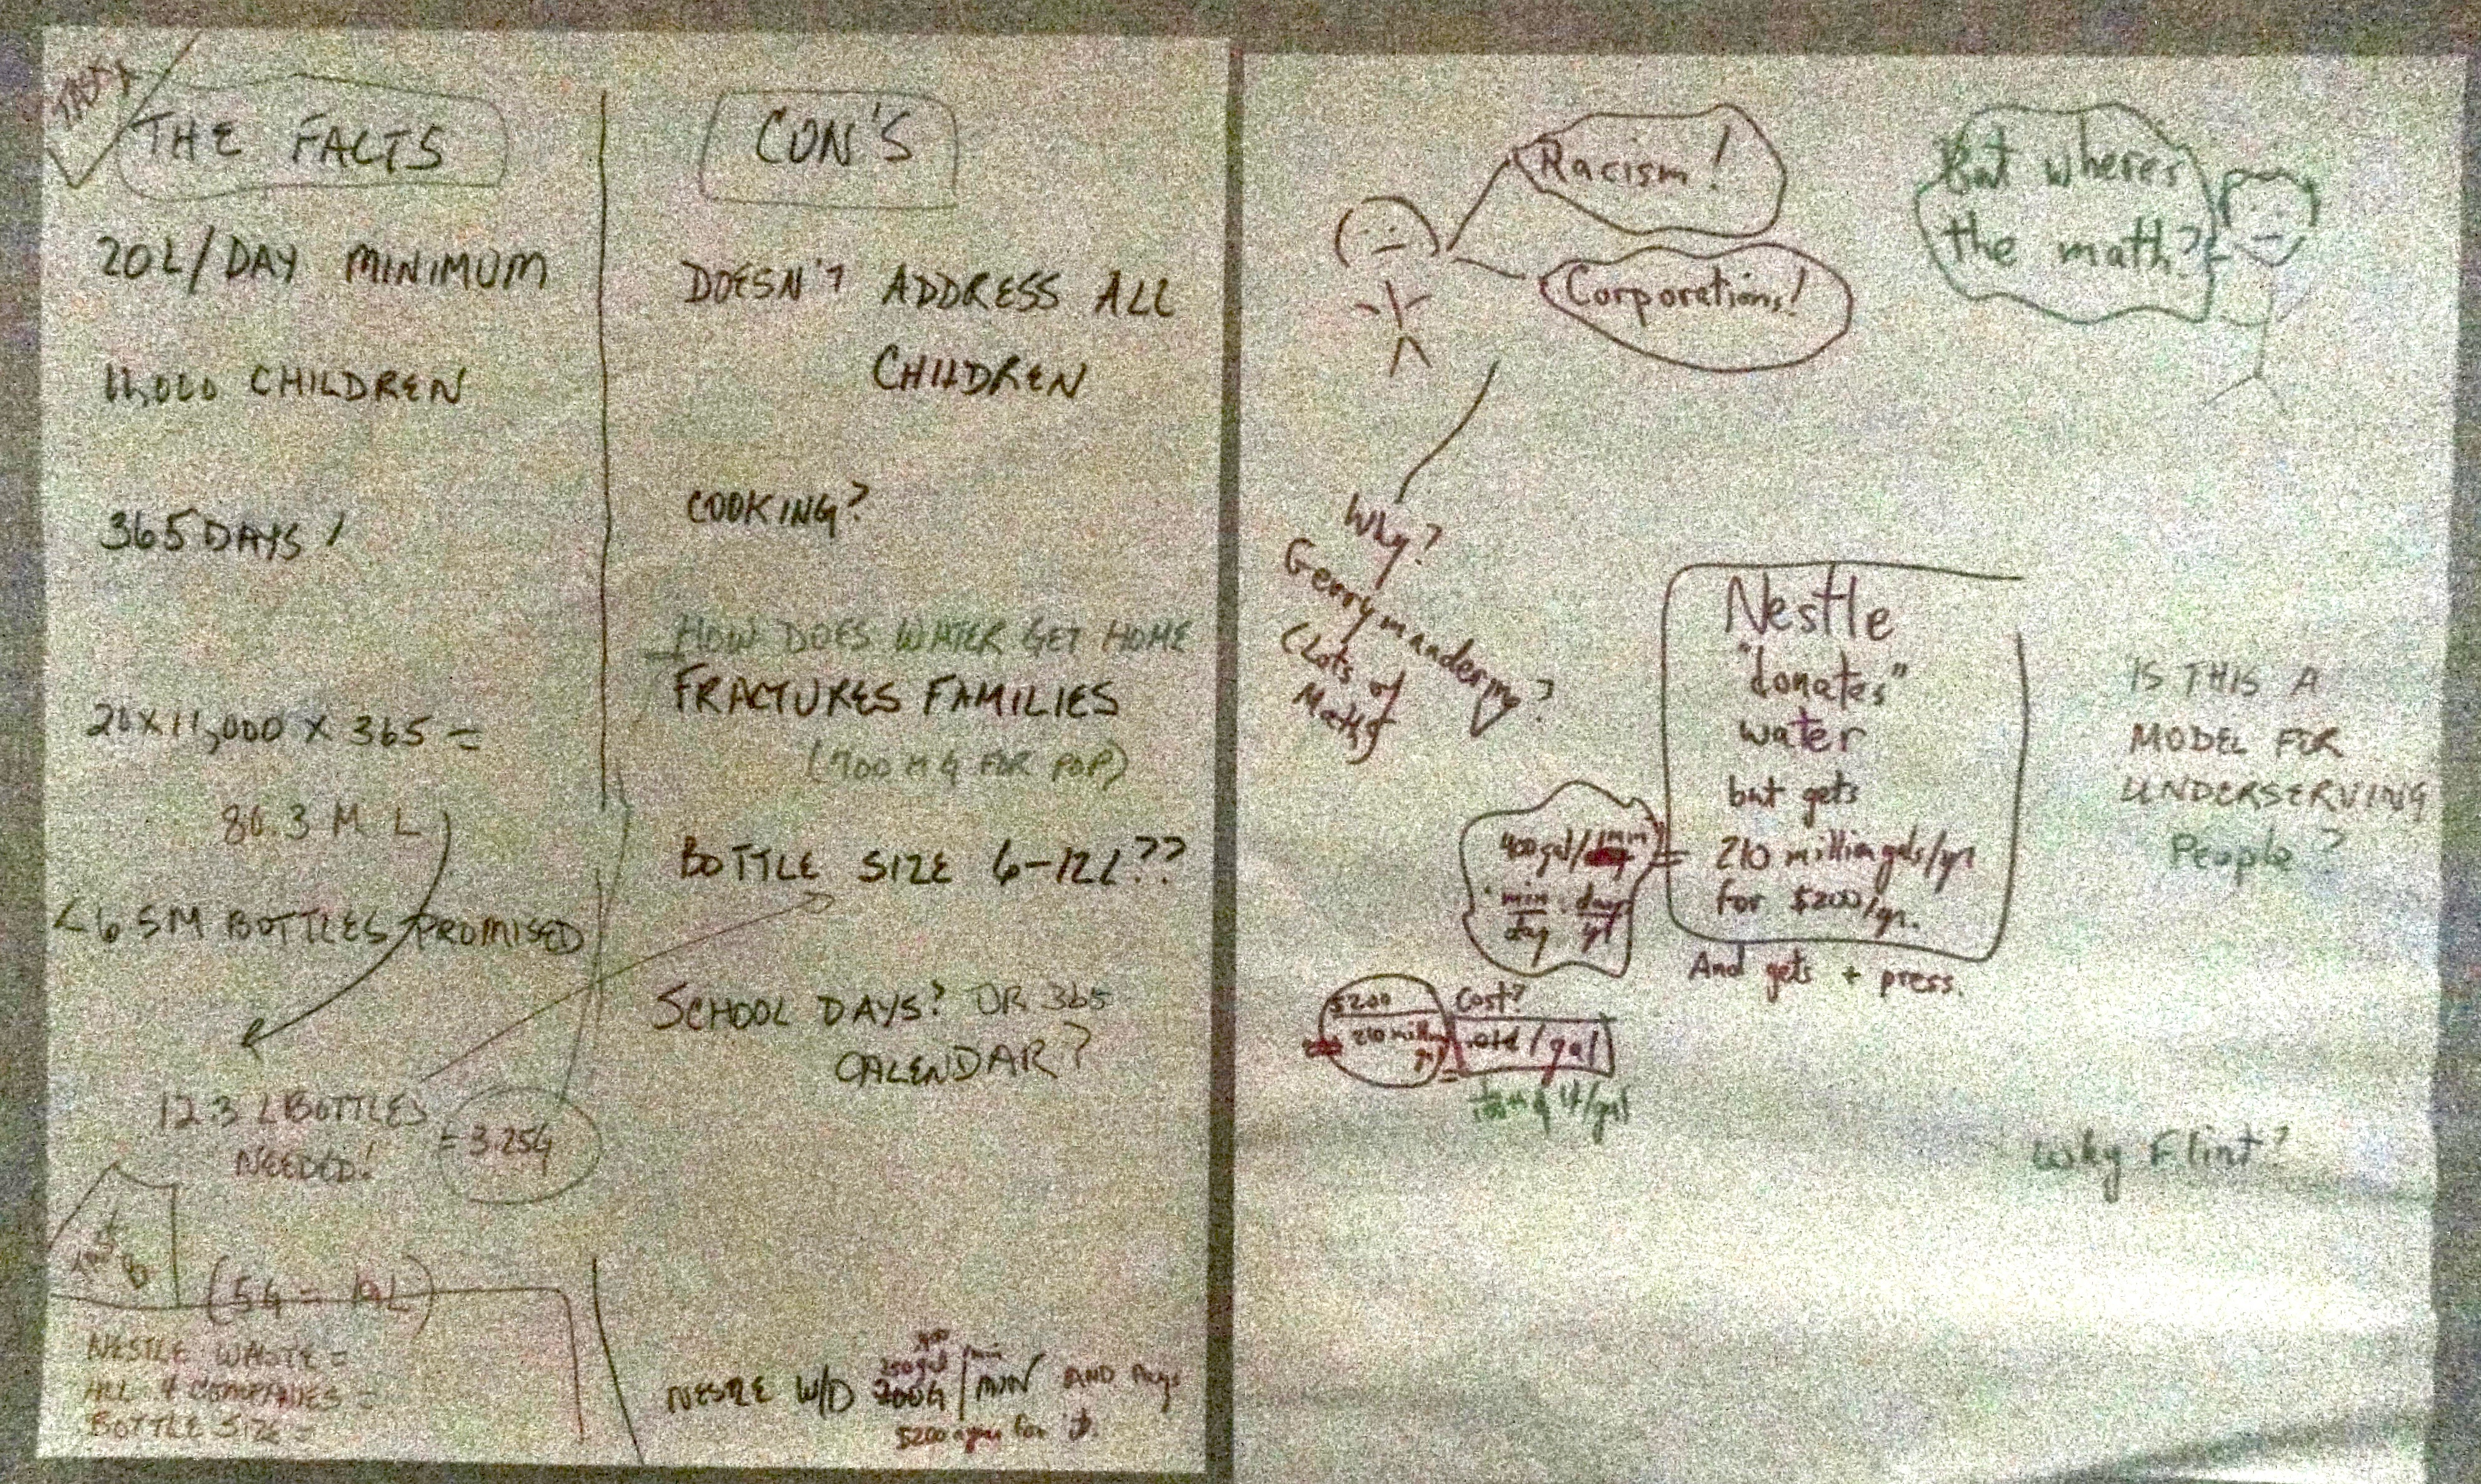 TASK A
THE FACTS
20L/DAY MINIMUM
11,000 CHILDREN
365 DAYS!
20 x 11,000 x 365 =
80.3 M L
<6.5M BOTTLES PROMISED
12.3 L BOTTLES
NEEDED!
= 3.25G
TASK
B
(5G = 19L)
NESTLE WASTE =
ALL 4 COMPANIES =
BOTTLE SIZE =
CON'S
DOESN'T ADDRESS ALL
CHILDREN
COOKING?
HOW DOES WATER GET HOME
FRACTURES FAMILIES
FOR POP)
BOTTLE SIZE 6-12L??
SCHOOL DAYS? OR 365
CALENDAR?
400
250gal/min
NESTLE W/D 200G/MIN AND Pays
$200 a year for it.
Racism!
Corporations!
But where's
the math?
Why?
Gerrymandering?
(Lots of
Math)
Nestle
"donates"
water
but gets
210 million gals/yr
for $200/yr.
And gets + press.
400 gal/min
min day
day yr
=
$200
210 million
Cost?
/gal
IS THIS A
MODEL FOR
UNDERSERVING
People?
Why Flint?